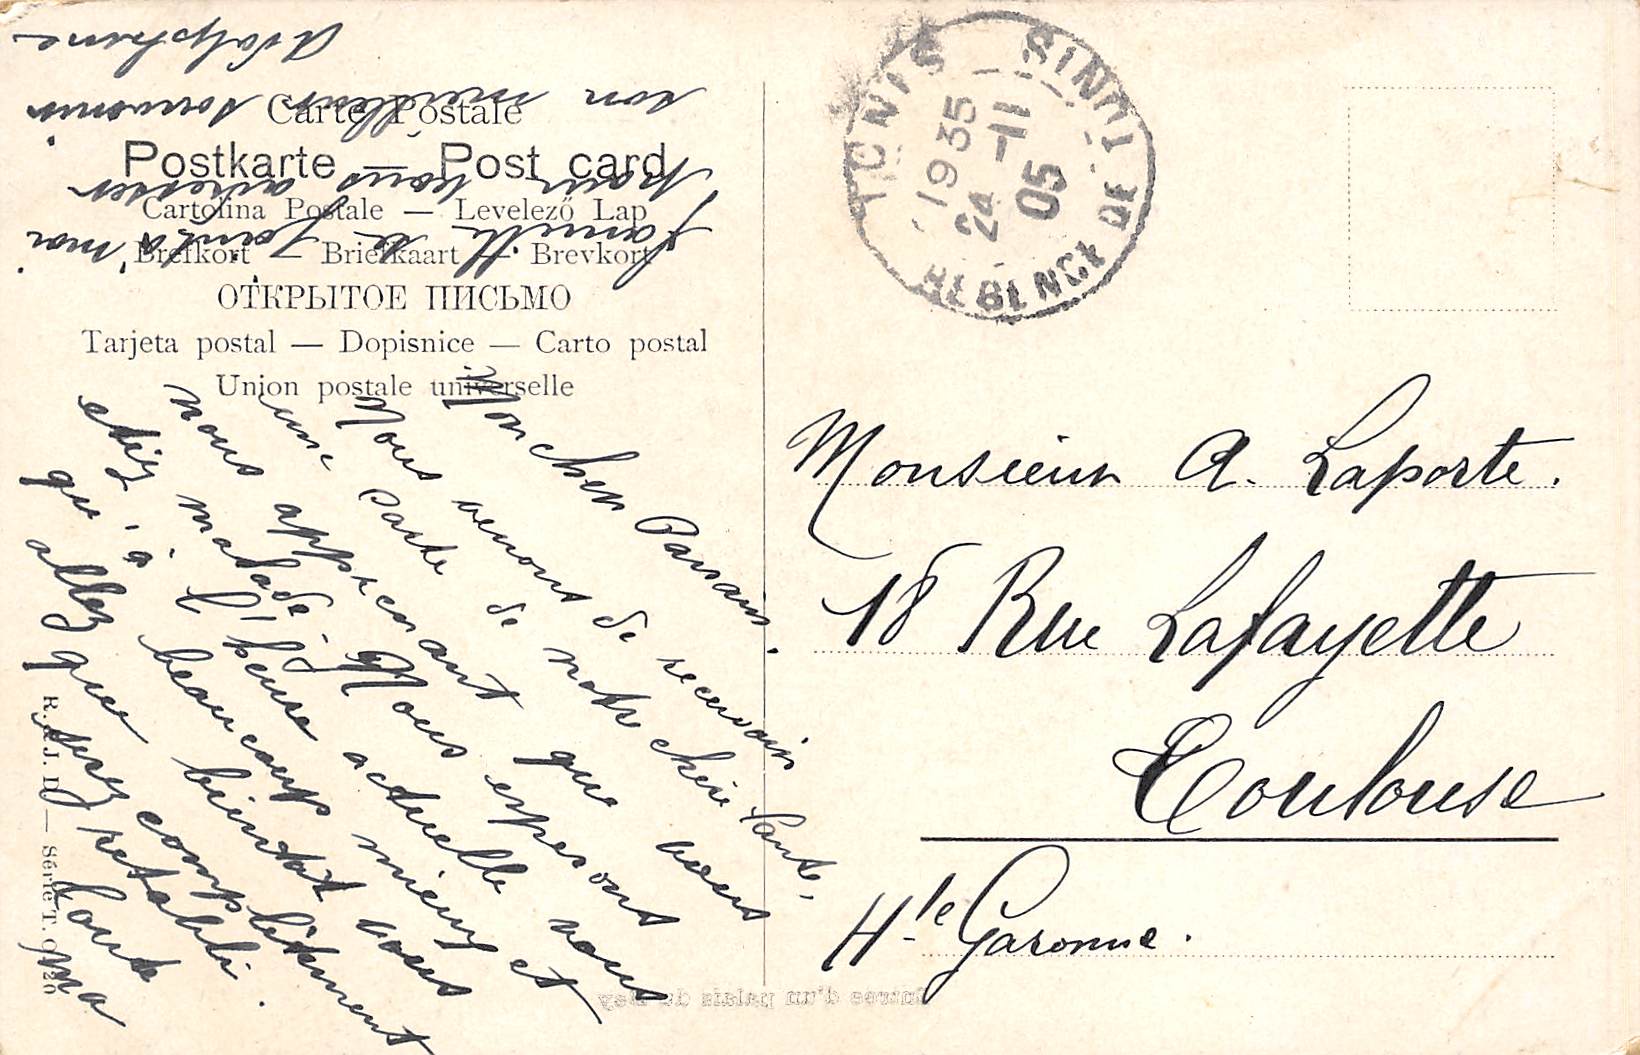 Carte Postale
Postkarte — Post card
Cartolina Postale — Levelező Lap
Brefkort — Briefkaart — Brevkort
ОТКРЫТОЕ ПИСЬМО
Tarjeta postal — Dopisnice — Carto postal
Union postale universelle
Mon cher Parrain.
Nous venons de recevoir
une carte de notre chère tante,
nous apprenant que vous
etiez malade. Nous esperons
qu'à l'heure actuelle vous
allez beaucoup mieux et
que bientot vous
serez complètement
retabli.
Toute ma
famille se joint à moi
pour vous adresser
son meilleur souvenir
Adolphine
TUNIS
1935
24 -11
05
REGENCE DE TUNIS
Monsieur A. Laporte.
18 Rue Lafayette
Toulouse
Hte Garonne.
R. & J. D. — Série T.
Entree d'un palais du Bey